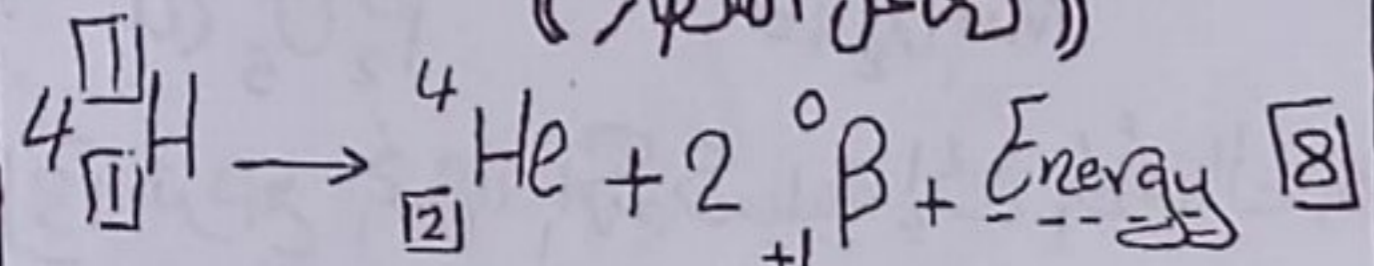 4 ¹₁H → ⁴₂He + 2 ⁰₊₁β + Energy 8